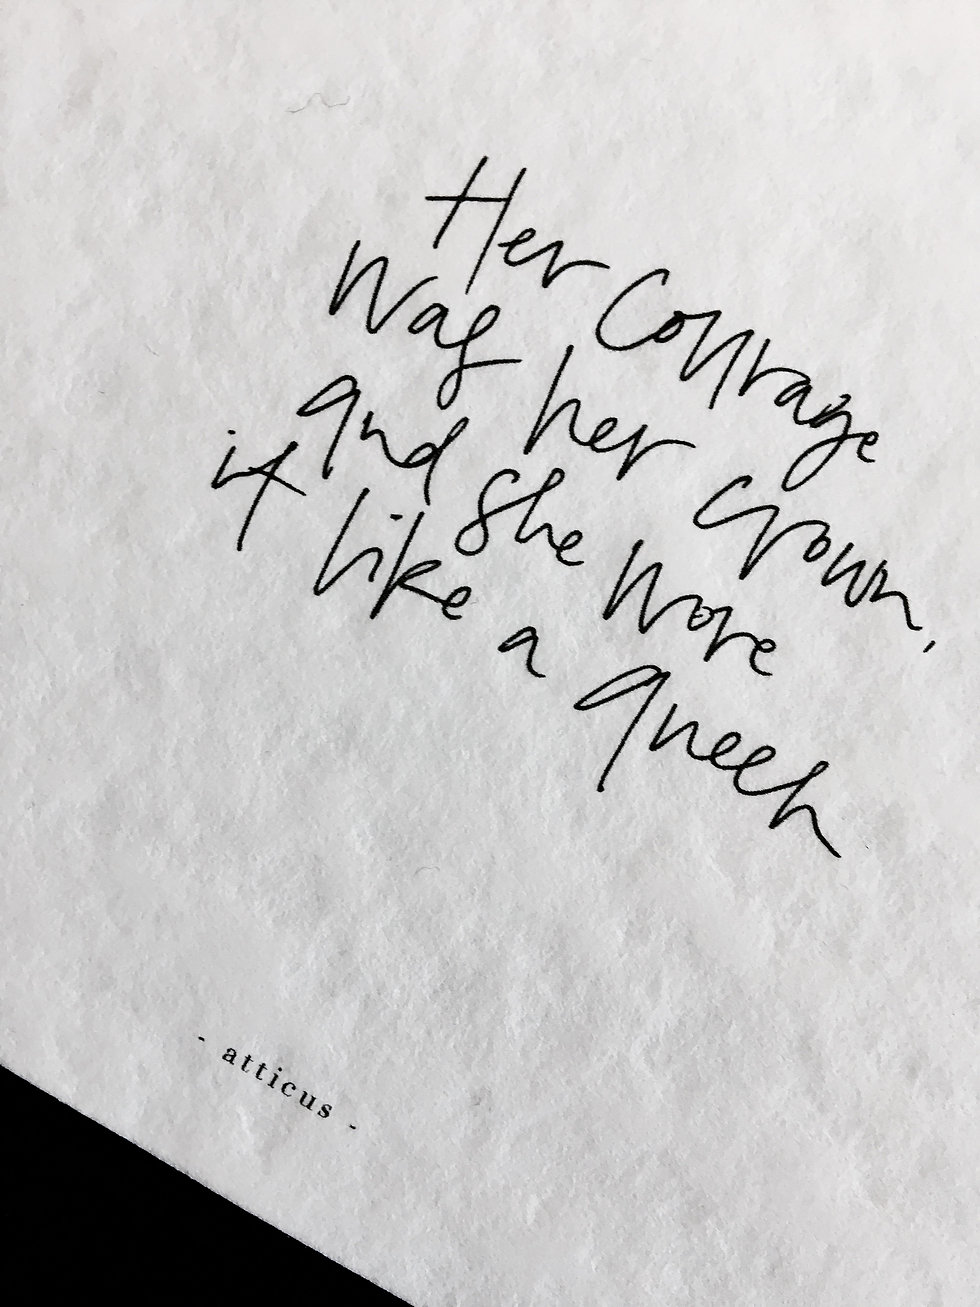 Her Courage
Was her Crown,
and She Wore
it like a queen
- atticus -